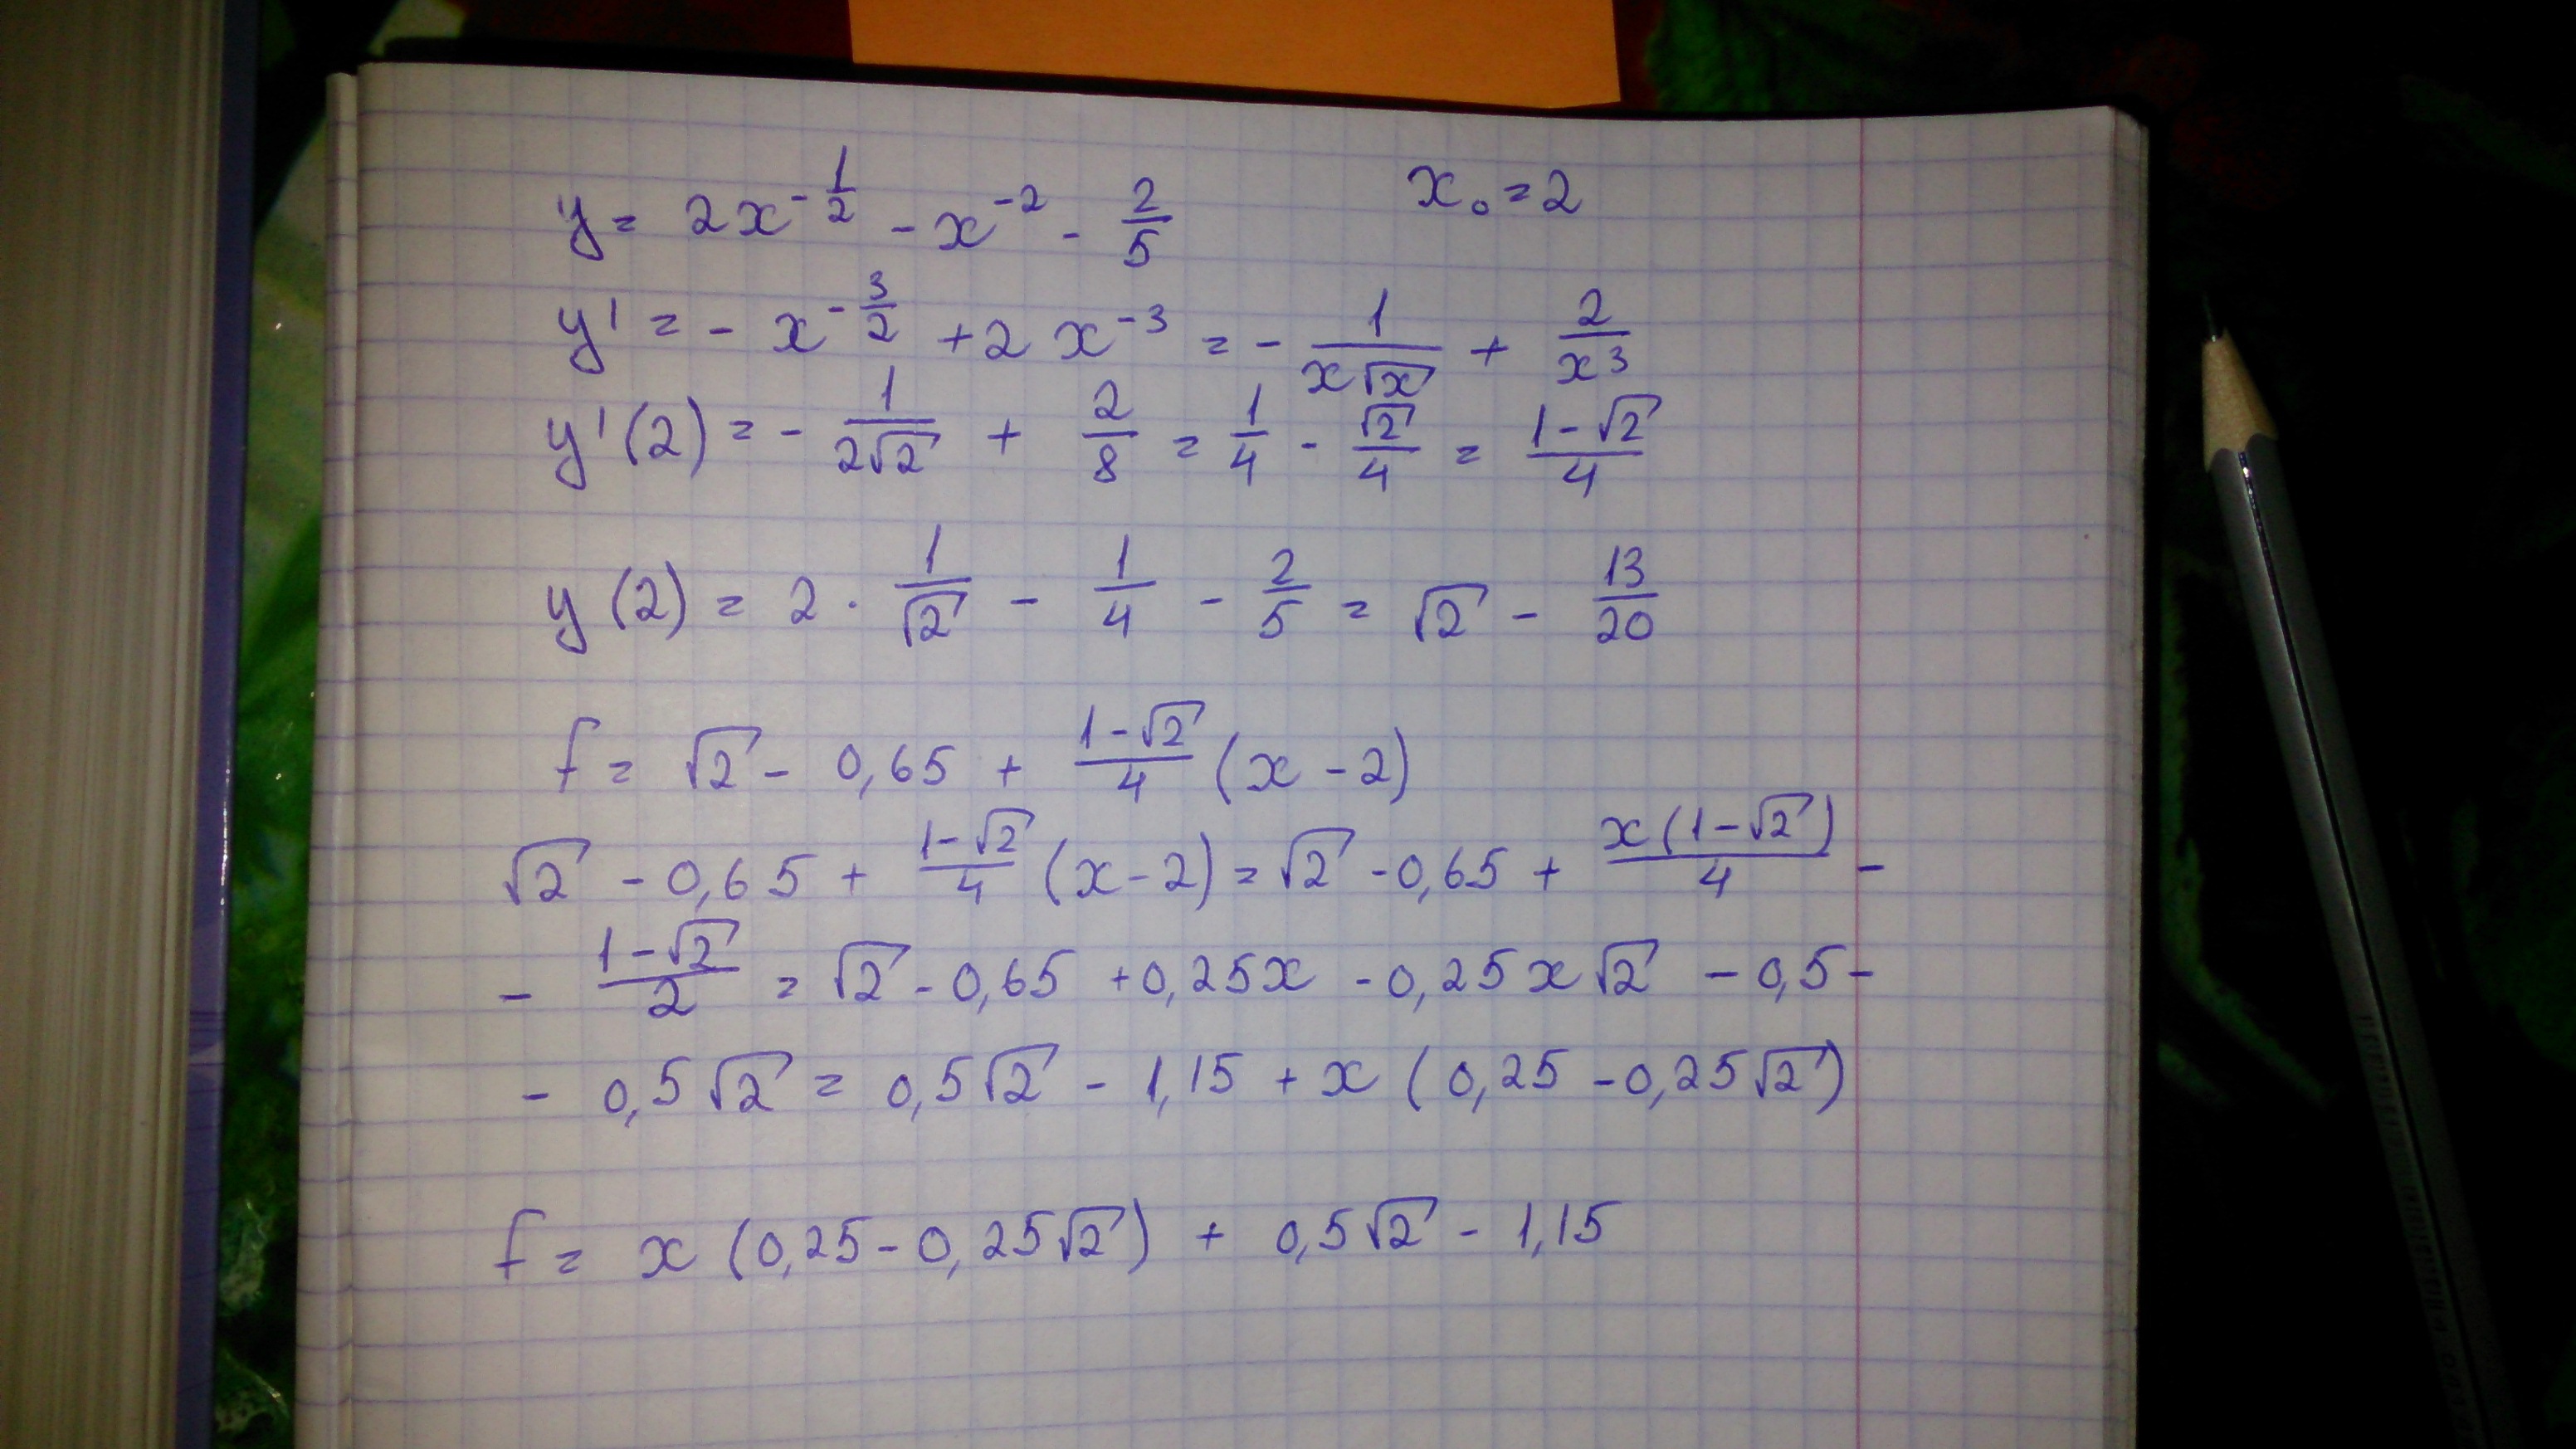 y = 2x^{-\frac{1}{2}} - x^{-2} - \frac{2}{5}    x_0 = 2
y' = -x^{-\frac{3}{2}} + 2x^{-3} = -\frac{1}{x\sqrt{x}} + \frac{2}{x^3}
y'(2) = -\frac{1}{2\sqrt{2}} + \frac{2}{8} = \frac{1}{4} - \frac{\sqrt{2}}{4} = \frac{1-\sqrt{2}}{4}
y(2) = 2 \cdot \frac{1}{\sqrt{2}} - \frac{1}{4} - \frac{2}{5} = \sqrt{2} - \frac{13}{20}
f = \sqrt{2} - 0,65 + \frac{1-\sqrt{2}}{4}(x-2)
\sqrt{2} - 0,65 + \frac{1-\sqrt{2}}{4}(x-2) = \sqrt{2} - 0,65 + \frac{x(1-\sqrt{2})}{4} -
- \frac{1-\sqrt{2}}{2} = \sqrt{2} - 0,65 + 0,25x - 0,25x\sqrt{2} - 0,5 -
- 0,5\sqrt{2} = 0,5\sqrt{2} - 1,15 + x(0,25 - 0,25\sqrt{2})
f = x(0,25 - 0,25\sqrt{2}) + 0,5\sqrt{2} - 1,15